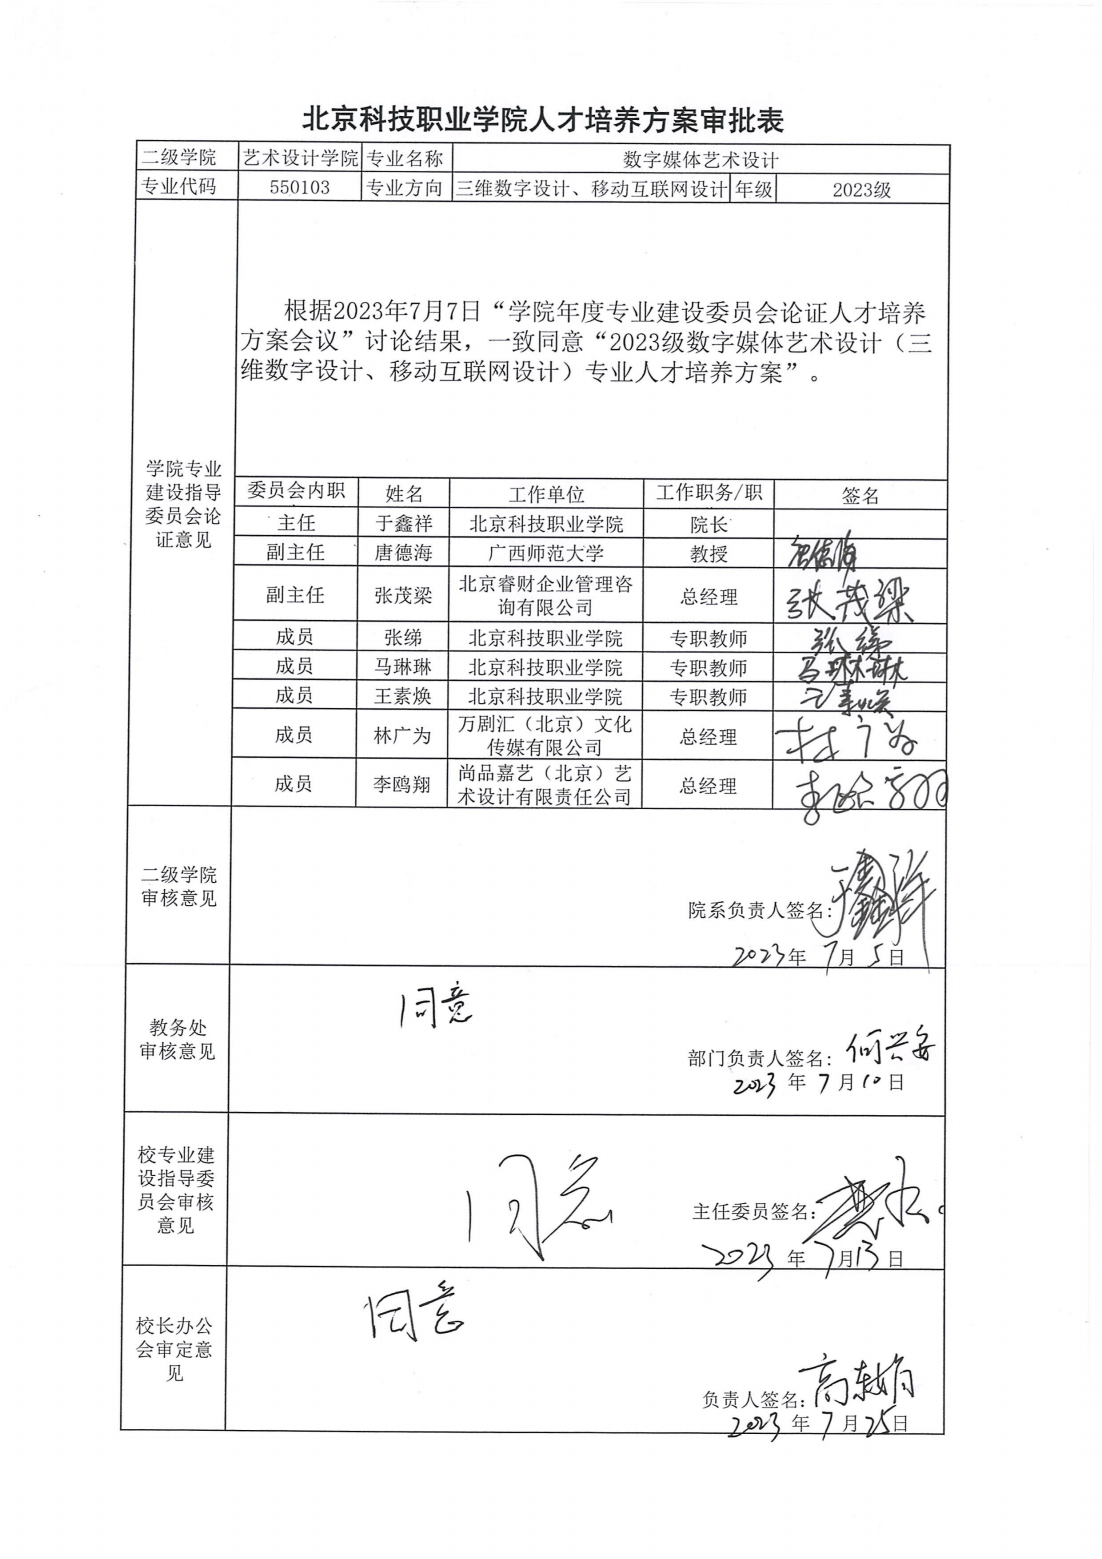 北京科技职业学院人才培养方案审批表
二级学院 艺术设计学院 专业名称 数字媒体艺术设计
专业代码 550103 专业方向 三维数字设计、移动互联网设计 年级 2023级
根据2023年7月7日“学院年度专业建设委员会论证人才培养
方案会议”讨论结果，一致同意“2023级数字媒体艺术设计（三
维数字设计、移动互联网设计）专业人才培养方案”。
学院专业
建设指导
委员会论
证意见
委员会内职 姓名 工作单位 工作职务/职 签名
主任 于鑫祥 北京科技职业学院 院长
副主任 唐德海 广西师范大学 教授 唐德海
副主任 张茂梁 北京睿财企业管理咨
询有限公司 总经理 张茂梁
成员 张绨 北京科技职业学院 专职教师 张绨
成员 马琳琳 北京科技职业学院 专职教师 马琳琳
成员 王素焕 北京科技职业学院 专职教师 王素焕
成员 林广为 万剧汇（北京）文化
传媒有限公司 总经理 林广为
成员 李鸥翔 尚品嘉艺（北京）艺
术设计有限责任公司 总经理 李鸥翔
二级学院
审核意见
院系负责人签名：于鑫祥
2023年 7月 5日
教务处
审核意见
同意
部门负责人签名：
2023 年 7月10日
校专业建
设指导委
员会审核
意见
同意
主任委员签名：
2023 年 7月13日
校长办公
会审定意
见
同意
负责人签名：高东娟
2023 年 7月25日